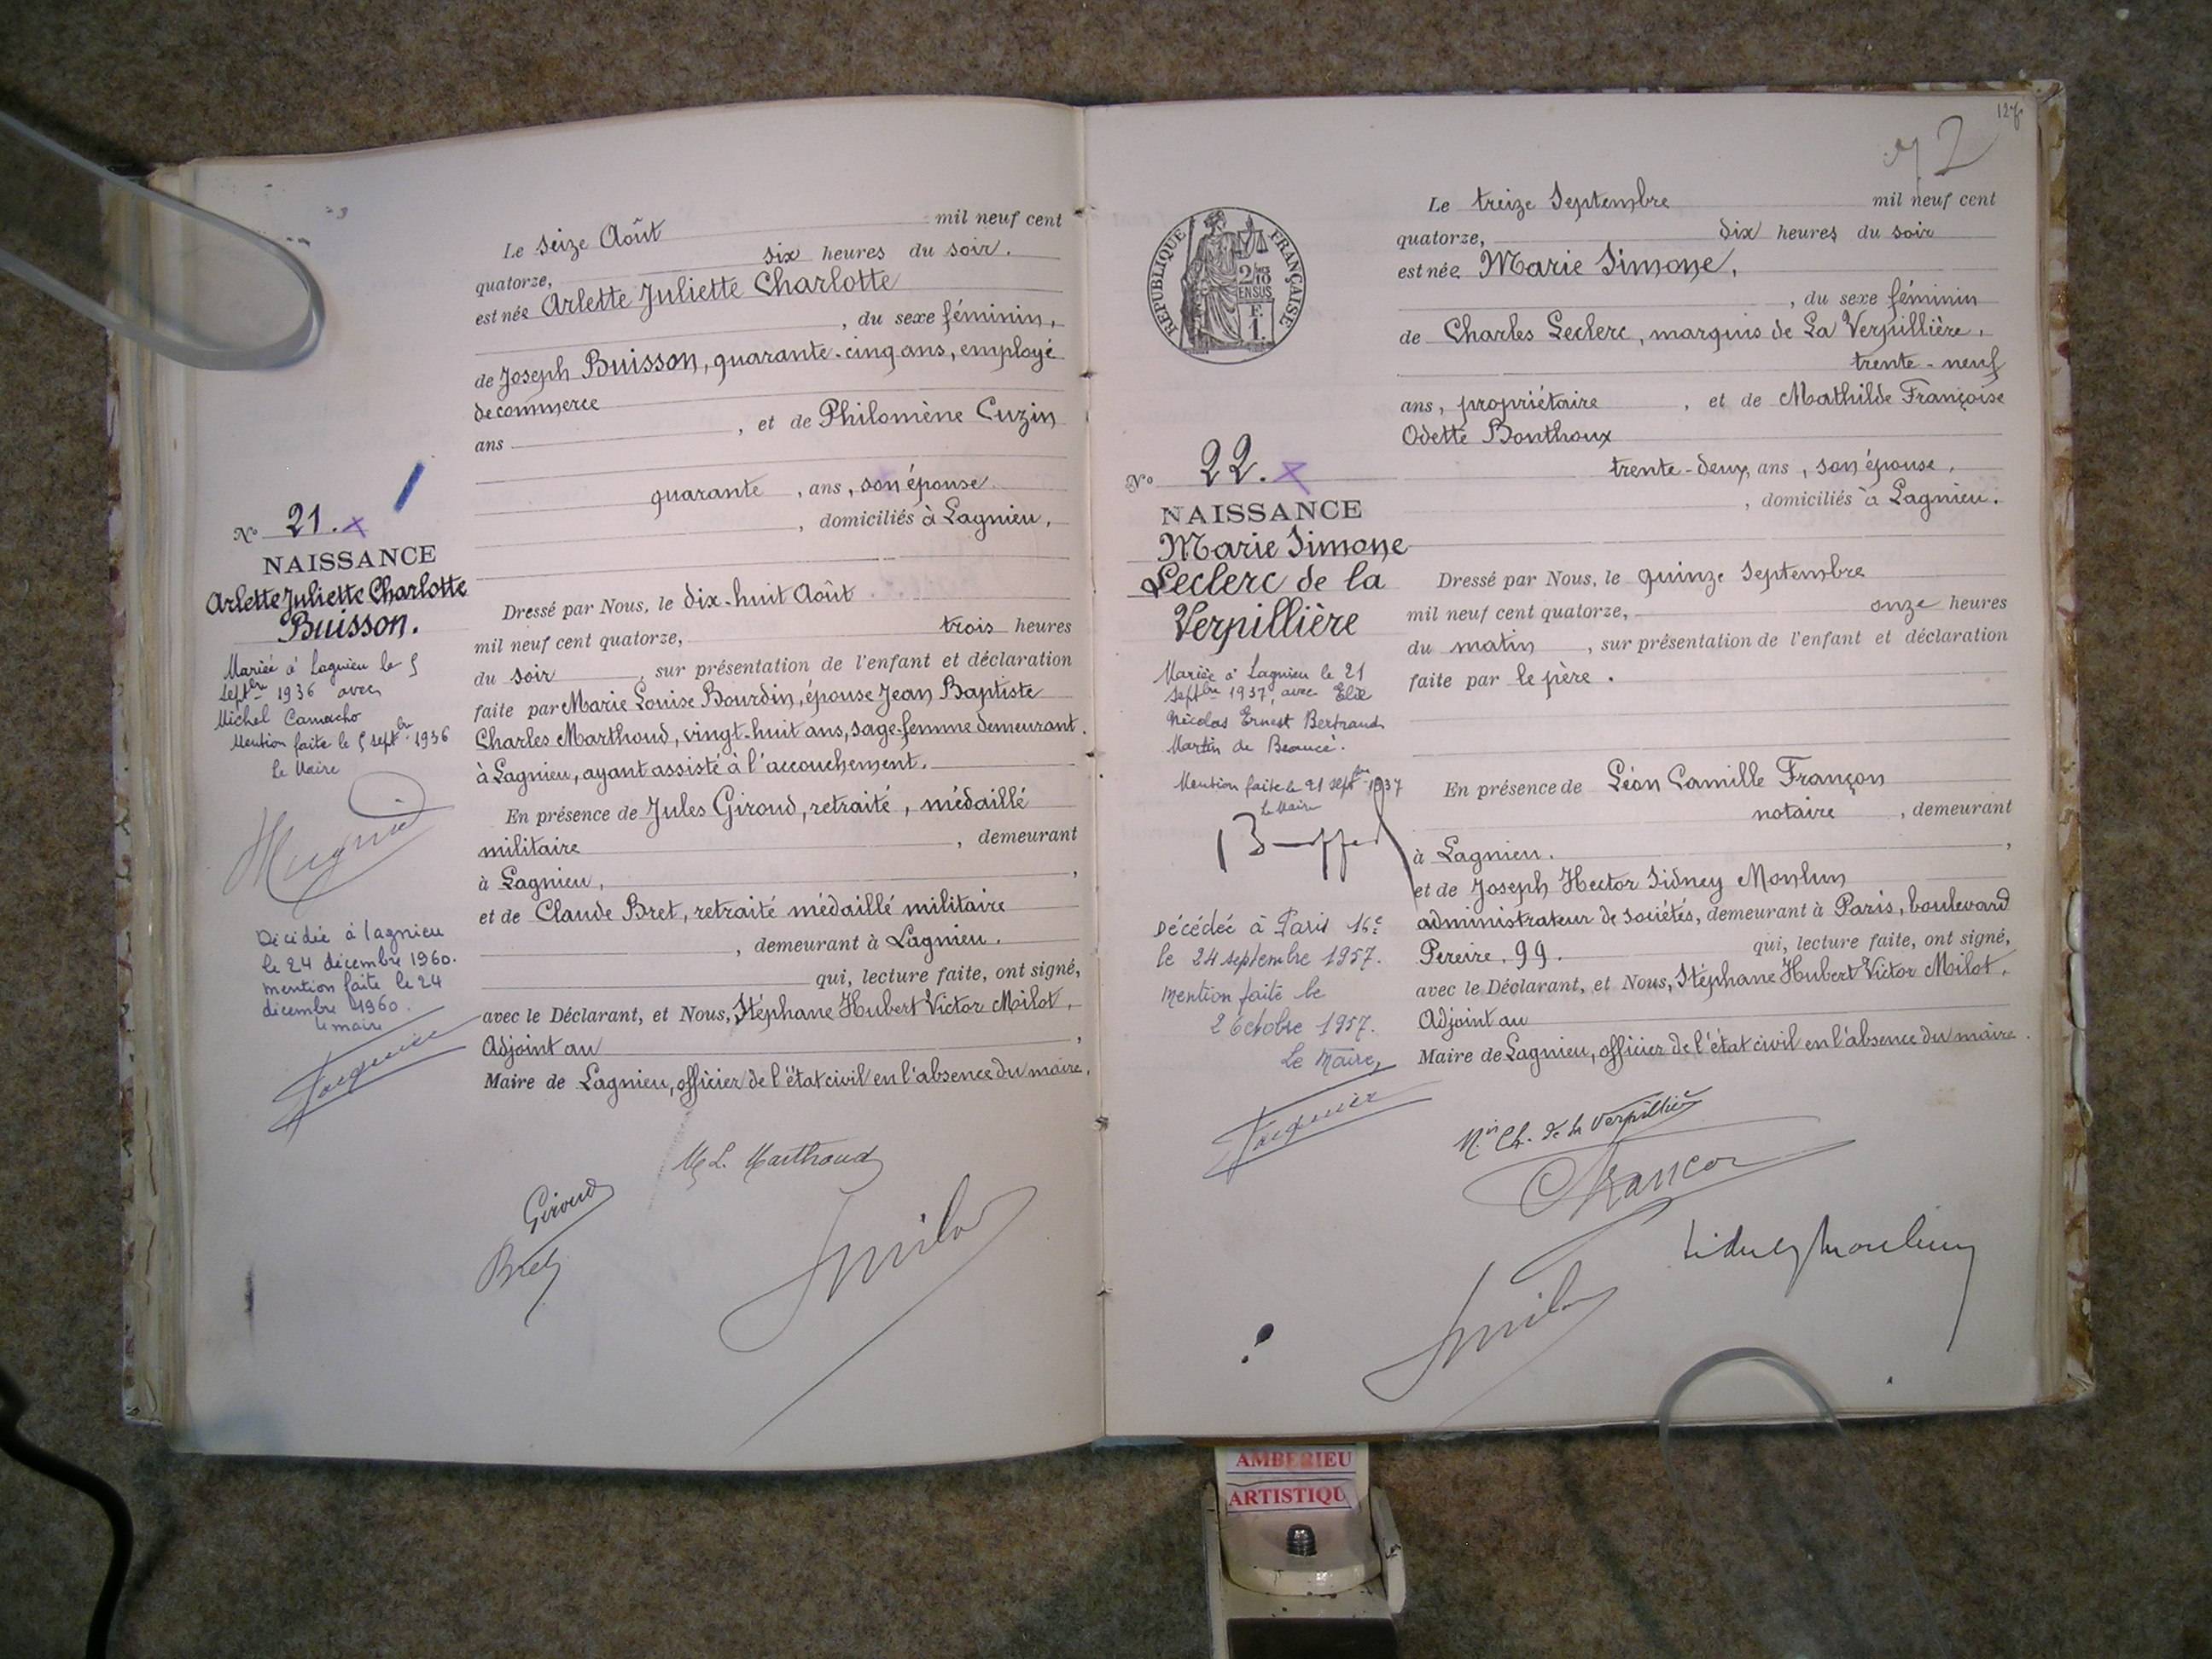 Le seize Août mil neuf cent
quatorze, six heures du soir.
est née Arlette Juliette Charlotte
, du sexe féminin,
de Joseph Buisson, quarante-cinq ans, employé
de commerce
ans , et de Philomène Cuzin
quarante , ans, son épouse.
, domiciliés à Lagnieu,
N° 21.
NAISSANCE
Arlette Juliette Charlotte
Buisson.
Mariée à Lagnieu le 5
septbre 1936 avec
Michel Camacho
Mention faite le 5 septbre 1936
Le Maire
Décédée à Lagnieu
le 24 décembre 1960.
mention faite le 24
décembre 1960.
le maire
Dressé par Nous, le dix-huit Août
mil neuf cent quatorze, trois heures
du soir , sur présentation de l'enfant et déclaration
faite par Marie Louise Bourdin, épouse Jean Baptiste
Charles Marthoud, vingt-huit ans, sage-femme demeurant
à Lagnieu, ayant assisté à l'accouchement.
En présence de Jules Giroud, retraité, médaillé
militaire , demeurant
à Lagnieu, ,
et de Claude Bret, retraité médaillé militaire
, demeurant à Lagnieu.
qui, lecture faite, ont signé,
avec le Déclarant, et Nous, Stéphane Hubert Victor Milot,
Adjoint au ,
Maire de Lagnieu, officier de l'état civil en l'absence du maire.
M L. Marthoud
Giroud
Bret
Smilot
127
72
Le treize Septembre mil neuf cent
quatorze, dix heures du soir
est née Marie Simone,
, du sexe féminin
de Charles Leclerc, marquis de La Verpillière,
trente-neuf
ans, propriétaire , et de Mathilde Françoise
Odette Bonthoux
trente-deux, ans, son épouse,
, domiciliés à Lagnieu.
RÉPUBLIQUE FRANÇAISE
2/10
EN SUS
F.
1.
N° 22.
NAISSANCE
Marie Simone
Leclerc de la
Verpillière
Mariée à Lagnieu le 21
septbre 1937, avec Elie
Nicolas Ernest Bertrand
Martin de Beaucé.
Mention faite le 21 septbre 1937
Le Maire
Décédée à Paris 16e
le 24 septembre 1957.
Mention faite le
2 Octobre 1957.
Le Maire,
Dressé par Nous, le quinze Septembre
mil neuf cent quatorze, onze heures
du matin , sur présentation de l'enfant et déclaration
faite par le père.
En présence de Léon Camille Françon
notaire , demeurant
à Lagnieu. ,
et de Joseph Hector Sidney Monlun
administrateur de sociétés, demeurant à Paris, boulevard
Pereire, 99. qui, lecture faite, ont signé,
avec le Déclarant, et Nous, Stéphane Hubert Victor Milot,
Adjoint au
Maire de Lagnieu, officier de l'état civil en l'absence du maire.
Mis Ch. de la Verpillière
Françon
Smilot
AMBERIEU
ARTISTIQU